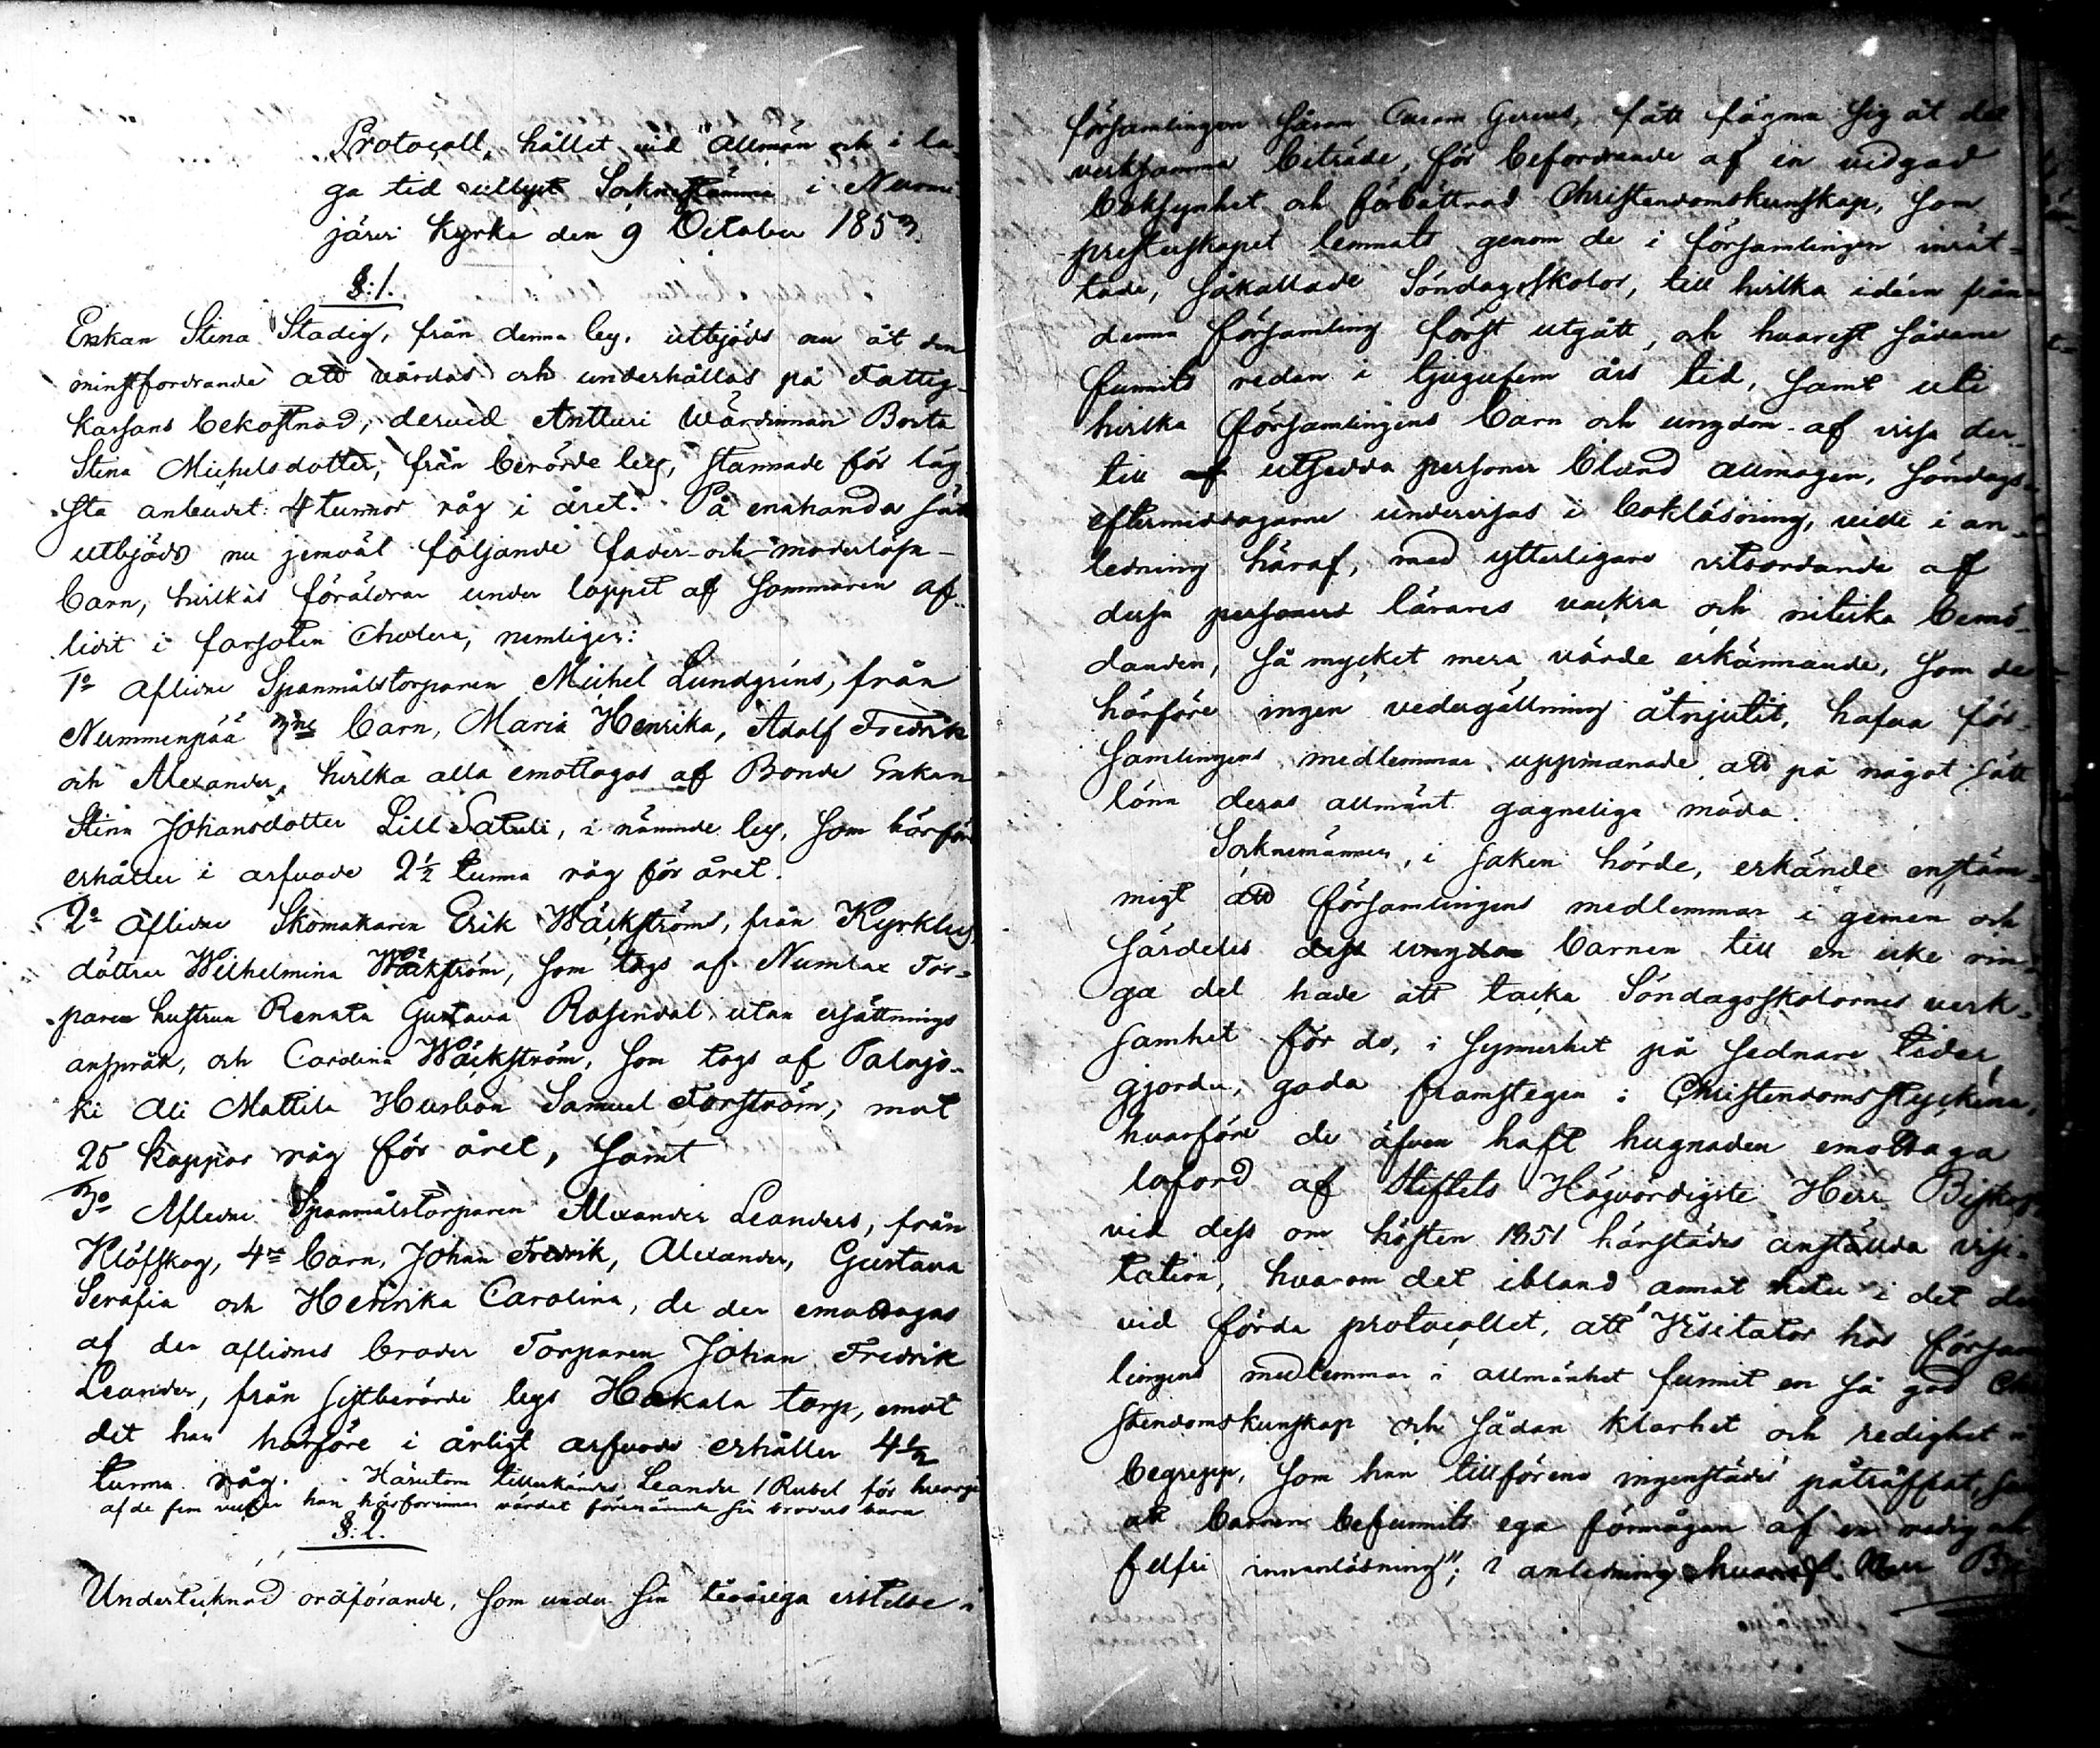 Protocoll, hållet vid Allmän och i la-
ga tid utlyst Socknestämma i Nurmi-
järvi Kyrka den 9 October 1853.
§:1.
Enkan Stina Stadig, från denna by, utbjöds nu åt den
minstfordrande att vårdas och underhållas på Fattig-
kassans bekostnad, dervid Antturi Wärdinnan Borta
Stina Michelsdotter, från berörde by, stannade för läg-
sta anbudet: 4 tunnor råg i året. På enahanda sätt
utbjöds nu jemväl följande fader- och moderlösa
barn, hvilkas föräldrar under loppet af sommaren af-
lidit i farsoten Cholera, nemligen:
1o Aflidne Spanmålstorparen Michel Lundgrens, från
Nummenpää 3ne barn, Maria Henrika, Adolf Fredrik
och Alexander, hvilka alla emottogos af Bonde Enkan
Stina Johansdotter Lill Satuli, i nämnde by, som härför
erhåller i arfvode 2½ tunna råg för året.
2o Aflidne Skomakaren Erik Wäckströms, från Kyrkby,
döttrar Wilhelmina Wäckström, som togs af Numlax Tor-
pare hustrun Renata Gustava Rosendal, utan ersättnings
anspråk, och Carolina Wäckström, som togs af Palojo-
ki Ali Mattila Husbon Samuel Forström, mot
25 kappar råg för året, samt
3o Aflidne Spanmålstorparen Alexander Leanders, från
Klöfskog, 4ra barn, Johan Fredrik, Alexander, Gustava
Serafia och Henrika Carolina, de der emottogos
af den aflidnes broder Torparen Johan Fredrik
Leander, från sistberörde bys Hakala torp, emot
det han härföre i årligt arfvode erhåller 4½
tunna råg. Härutom tillerkändes Leander 1 Rubel för hvarje
af de fem veckor han härförinnan vårdat förenämnde sin broders barn
§:2.
Undertecknad ordförande, som under sin tioåriga vistelse i
församlingen såsom Curam Gerens, fått fägna sig åt det
verksamma biträde, för befordrande af en vidgad
boksynhet och förbättrad Christendomskunskap, som
presterskapet lemnats genom de i församlingen inrät-
tade, såkallade Söndagsskolor, till hvilka idéen från
denna församling först utgått, och hvarest sådane
funnits redan i tjugufem års tid, samt uti
hvilka församlingens barn och ungdom af vissa der-
till af utsedda personer bland allmogen, Söndags-
eftermiddagarne undervisas i bokläsning, ville i an-
ledning häraf, med ytterligare vitsordande af
dessa personers lärares vackra och nitiska bemö-
danden, så mycket mera värde erkännande, som de
härföre ingen vedergällning åtnjutit, hafva för-
samlingens medlemmar uppmanade att på något sätt
löna deras allmänt gagneliga möda.
Socknemännen, i saken hörde, erkände enstäm-
migt att församlingens medlemmar i gemen och
särdeles dess ungdom barnen till en icke rin-
ga del hade att tacka Söndagsskolornes verk-
samhet för de, i synnerhet på sednare tider,
gjorda, goda framstegen i Christendomsstyckena,
hvarföre de äfven haft hugnaden emottaga
loford af Stiftets Högvördigste Herr Biskop
vid dess om hösten 1851 härstädes anstälda visi-
tation, hvarom det ibland annat heter i det der-
vid förda protocollet, att "Visitator hos försam-
lingens medlemmar i allmänhet funnit en så god Chri-
stendomskunskap och sådan klarhet och redighet i
begrepp, som han tillförene ingenstädes påträffat,
att barnen befunnits ega förmågan af en redig och
felfri innanläsning"; i anledning hvaraf Herr